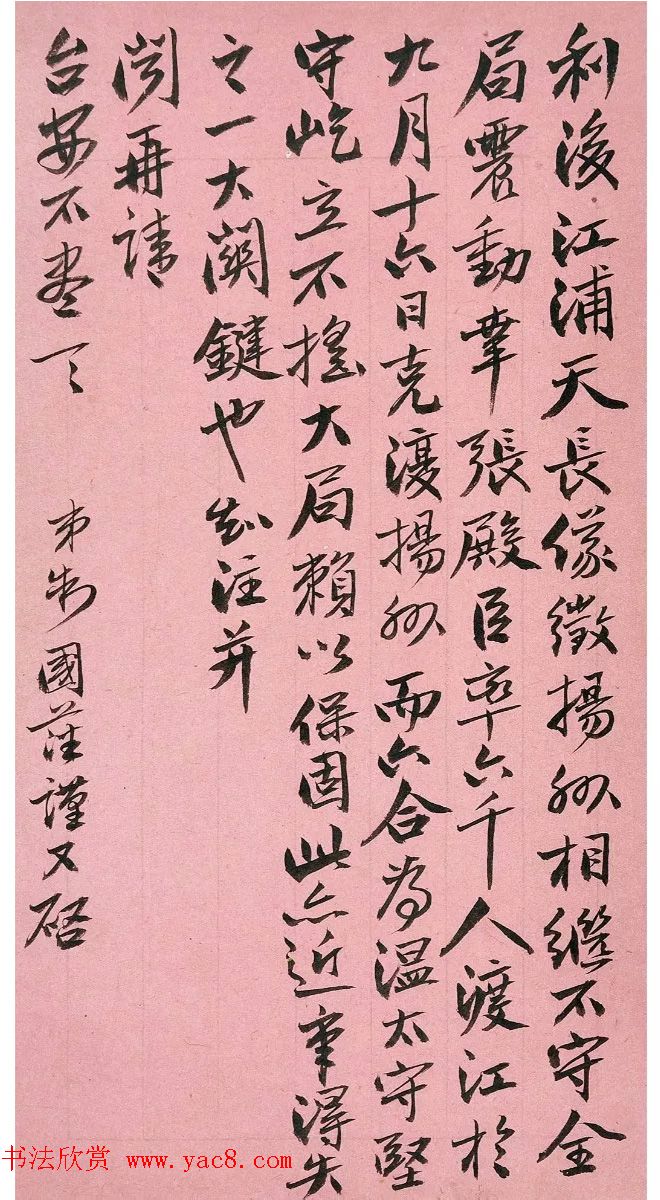 利後江浦天長儀徵揚州相繼不守全
局震動幸張殿臣率六千人渡江於
九月十六日克復揚州而六合為溫太守堅
守屹立不搖大局賴以保固此亦近事得失
之一大關鍵也知注并
聞再請
台安不盡一一
弟制國藩謹又啓
书法欣赏 www.yac8.com